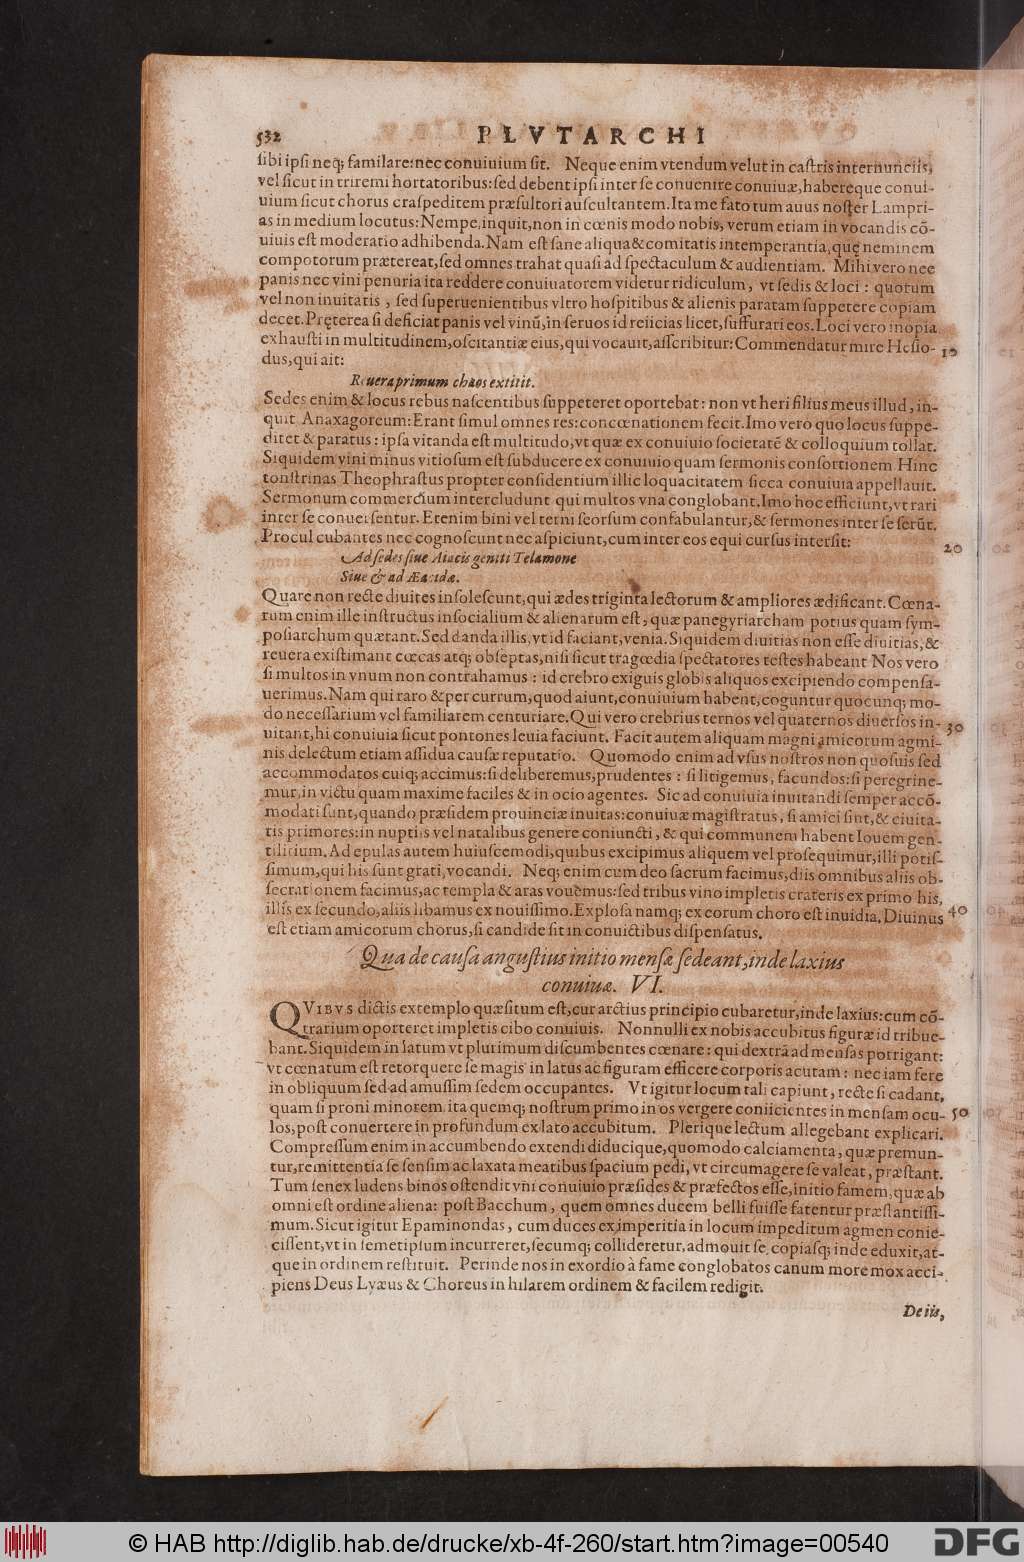 532 PLVTARCHI
sibi ipsi neq; familare: nec conuiuium sit. Neque enim vtendum velut in castris internunciis,
vel sicut in triremi hortatoribus: sed debent ipsi inter se conuenire conuiuæ, habereque conui-
uium sicut chorus craspeditem præsultori auscultantem. Ita me fato tum auus noster Lampri-
as in medium locutus: Nempe, inquit, non in cœnis modo nobis, verum etiam in vocandis cõ-
uiuis est moderatio adhibenda. Nam est sane aliqua & comitatis intemperantia, quę neminem
compotorum prætereat, sed omnes trahat quasi ad spectaculum & audientiam. Mihi vero nec
panis nec vini penuria ita reddere conuiuatorem videtur ridiculum, vt sedis & loci: quorum
vel non inuitatis, sed superuenientibus vltro hospitibus & alienis paratam suppetere copiam
decet. Pręterea si deficiat panis vel vinũ, in seruos id reiicias licet, suffurari eos. Loci vero inopia
exhausti in multitudinem, oscitantiæ eius, qui vocauit, asscribitur: Commendatur mire Hesio- 10
dus, qui ait:
Reuera primum chaos extitit.
Sedes enim & locus rebus nascentibus suppeteret oportebat: non vt heri filius meus illud, in-
quit Anaxagoreum: Erant simul omnes res: concœnationem fecit. Imo vero quo locus suppe-
ditet & paratus: ipsa vitanda est multitudo, vt quæ ex conuiuio societatẽ & colloquium tollat.
Siquidem vini minus vitiosum est subducere ex conuiuio quam sermonis consortionem Hinc
tonstrinas Theophrastus propter considentium illic loquacitatem sicca conuiuia appellauit.
Sermonum commercium intercludunt qui multos vna conglobant. Imo hoc efficiunt, vt rari
inter se conuersentur. Etenim bini vel terni seorsum confabulantur, & sermones inter se serũt.
Procul cubantes nec cognoscunt nec aspiciunt, cum inter eos equi cursus intersit: 20
Ad sedes siue Aiacis geniti Telamone
Siue & ad Æacidæ.
Quare non recte diuites insolescunt, qui ædes triginta lectorum & ampliores ædificant. Cœna-
rum enim ille instructus insocialium & alienarum est, quæ panegyriarcham potius quam sym-
posiarchum quærant. Sed danda illis, vt id faciant, venia. Siquidem diuitias non esse diuitias, &
reuera existimant cœcas atq; obseptas, nisi sicut tragœdia spectatores testes habeant Nos vero
si multos in vnum non contrahamus: id crebro exiguis globis aliquos excipiendo compensa-
uerimus. Nam qui raro & per currum, quod aiunt, conuiuium habent, coguntur quocunq; mo-
do necessarium vel familiarem centuriare. Qui vero crebrius ternos vel quaternos diuersos in- 30
uitant, hi conuiuia sicut pontones leuia faciunt. Facit autem aliquam magni amicorum agmi-
nis delectum etiam assidua causæ reputatio. Quomodo enim ad vsus nostros non quosuis sed
accommodatos cuiq; accimus: si deliberemus, prudentes: si litigemus, facundos: si peregrine-
mur, in victu quam maxime faciles & in ocio agentes. Sic ad conuiuia inuitandi semper accõ-
modati sunt, quando præsidem prouinciæ inuitas: conuiuæ magistratus, si amici sint, & ciuita-
tis primores: in nuptiis vel natalibus genere coniuncti, & qui communem habent Iouem gen-
tilitium. Ad epulas autem huiuscemodi, quibus excipimus aliquem vel prosequimur, illi potis-
simum, qui his sunt grati, vocandi. Neq; enim cum deo sacrum facimus, diis omnibus aliis ob-
secrationem facimus, ac templa & aras vouemus: sed tribus vino impletis crateris ex primo his,
illis ex secundo, aliis libamus ex nouissimo. Explosa namq; ex eorum choro est inuidia. Diuinus 40
est etiam amicorum chorus, si candide sit in conuictibus dispensatus.
Qua de causa angustius initio mensæ sedeant, inde laxius
conuiuæ. VI.
QVIBVS dictis extemplo quæsitum est, cur arctius principio cubaretur, inde laxius: cum cõ-
trarium oporteret impletis cibo conuiuis. Nonnulli ex nobis accubitus figuræ id tribue-
bant. Siquidem in latum vt plurimum discumbentes cœnare: qui dextrã ad mensas porrigant:
vt cœnatum est retorquere se magis in latus ac figuram efficere corporis acutam: nec iam fere
in obliquum sed ad amussim sedem occupantes. Vt igitur locum tali capiunt, recte si cadant,
quam si proni minorem: ita quemq; nostrum primo in os vergere coniicientes in mensam ocu- 50
los, post conuertere in profundum ex lato accubitum. Plerique lectum allegebant explicari.
Compressum enim in accumbendo extendi diducique, quomodo calciamenta, quæ premun-
tur, remittentia se sensim ac laxata meatibus spacium pedi, vt circumagere se valeat, præstant.
Tum senex ludens binos ostendit vni conuiuio præsides & præfectos esse, initio famem, quæ ab
omni est ordine aliena: post Bacchum, quem omnes ducem belli fuisse fatentur præstantissi-
mum. Sicut igitur Epaminondas, cum duces ex imperitia in locum impeditum agmen conie-
cissent, vt in semetipsum incurreret, secumq; collideretur, admouit se, copiasq; inde eduxit, at-
que in ordinem restituit. Perinde nos in exordio à fame conglobatos canum more mox acci-
piens Deus Lyæus & Choreus in hilarem ordinem & facilem redigit.
De iis,
© HAB http://diglib.hab.de/drucke/xb-4f-260/start.htm?image=00540
DFG